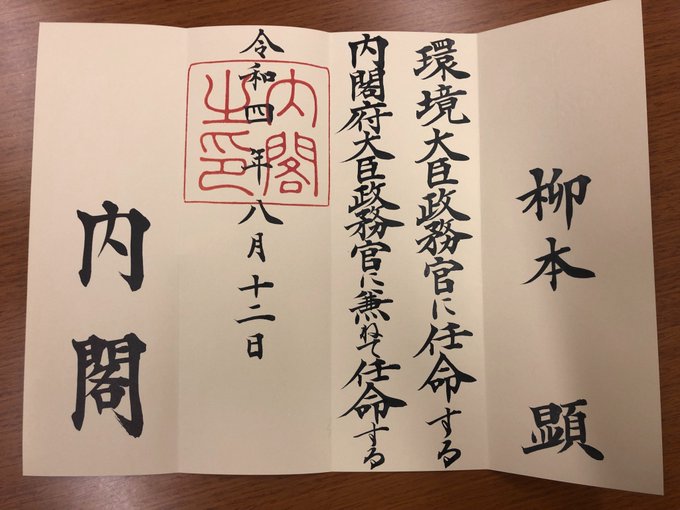 柳本 顕
環境大臣政務官に任命する
内閣府大臣政務官に兼ねて任命する
令和四年八月十二日
内閣之印
内閣